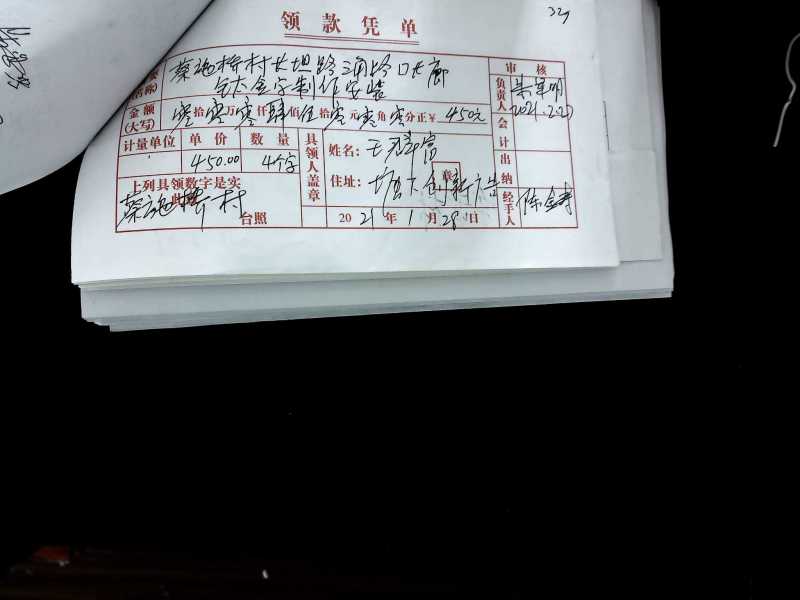 32
领款凭单
蔡池桥村长坦路三角路口长廊
名称)
钛金字制作安装
审核
负责人
2021.2.2
金额
(大写)
零拾零万零仟肆佰伍拾零元零角零分正¥450元
会计
计量单位 单价 数量
450.00 4个字
具领人盖章
姓名:王
住址:塘下创新广告
章
出纳
上列具领数字是实
此
蔡池桥村
台照
2021年1月28日
经手人
徐金寿